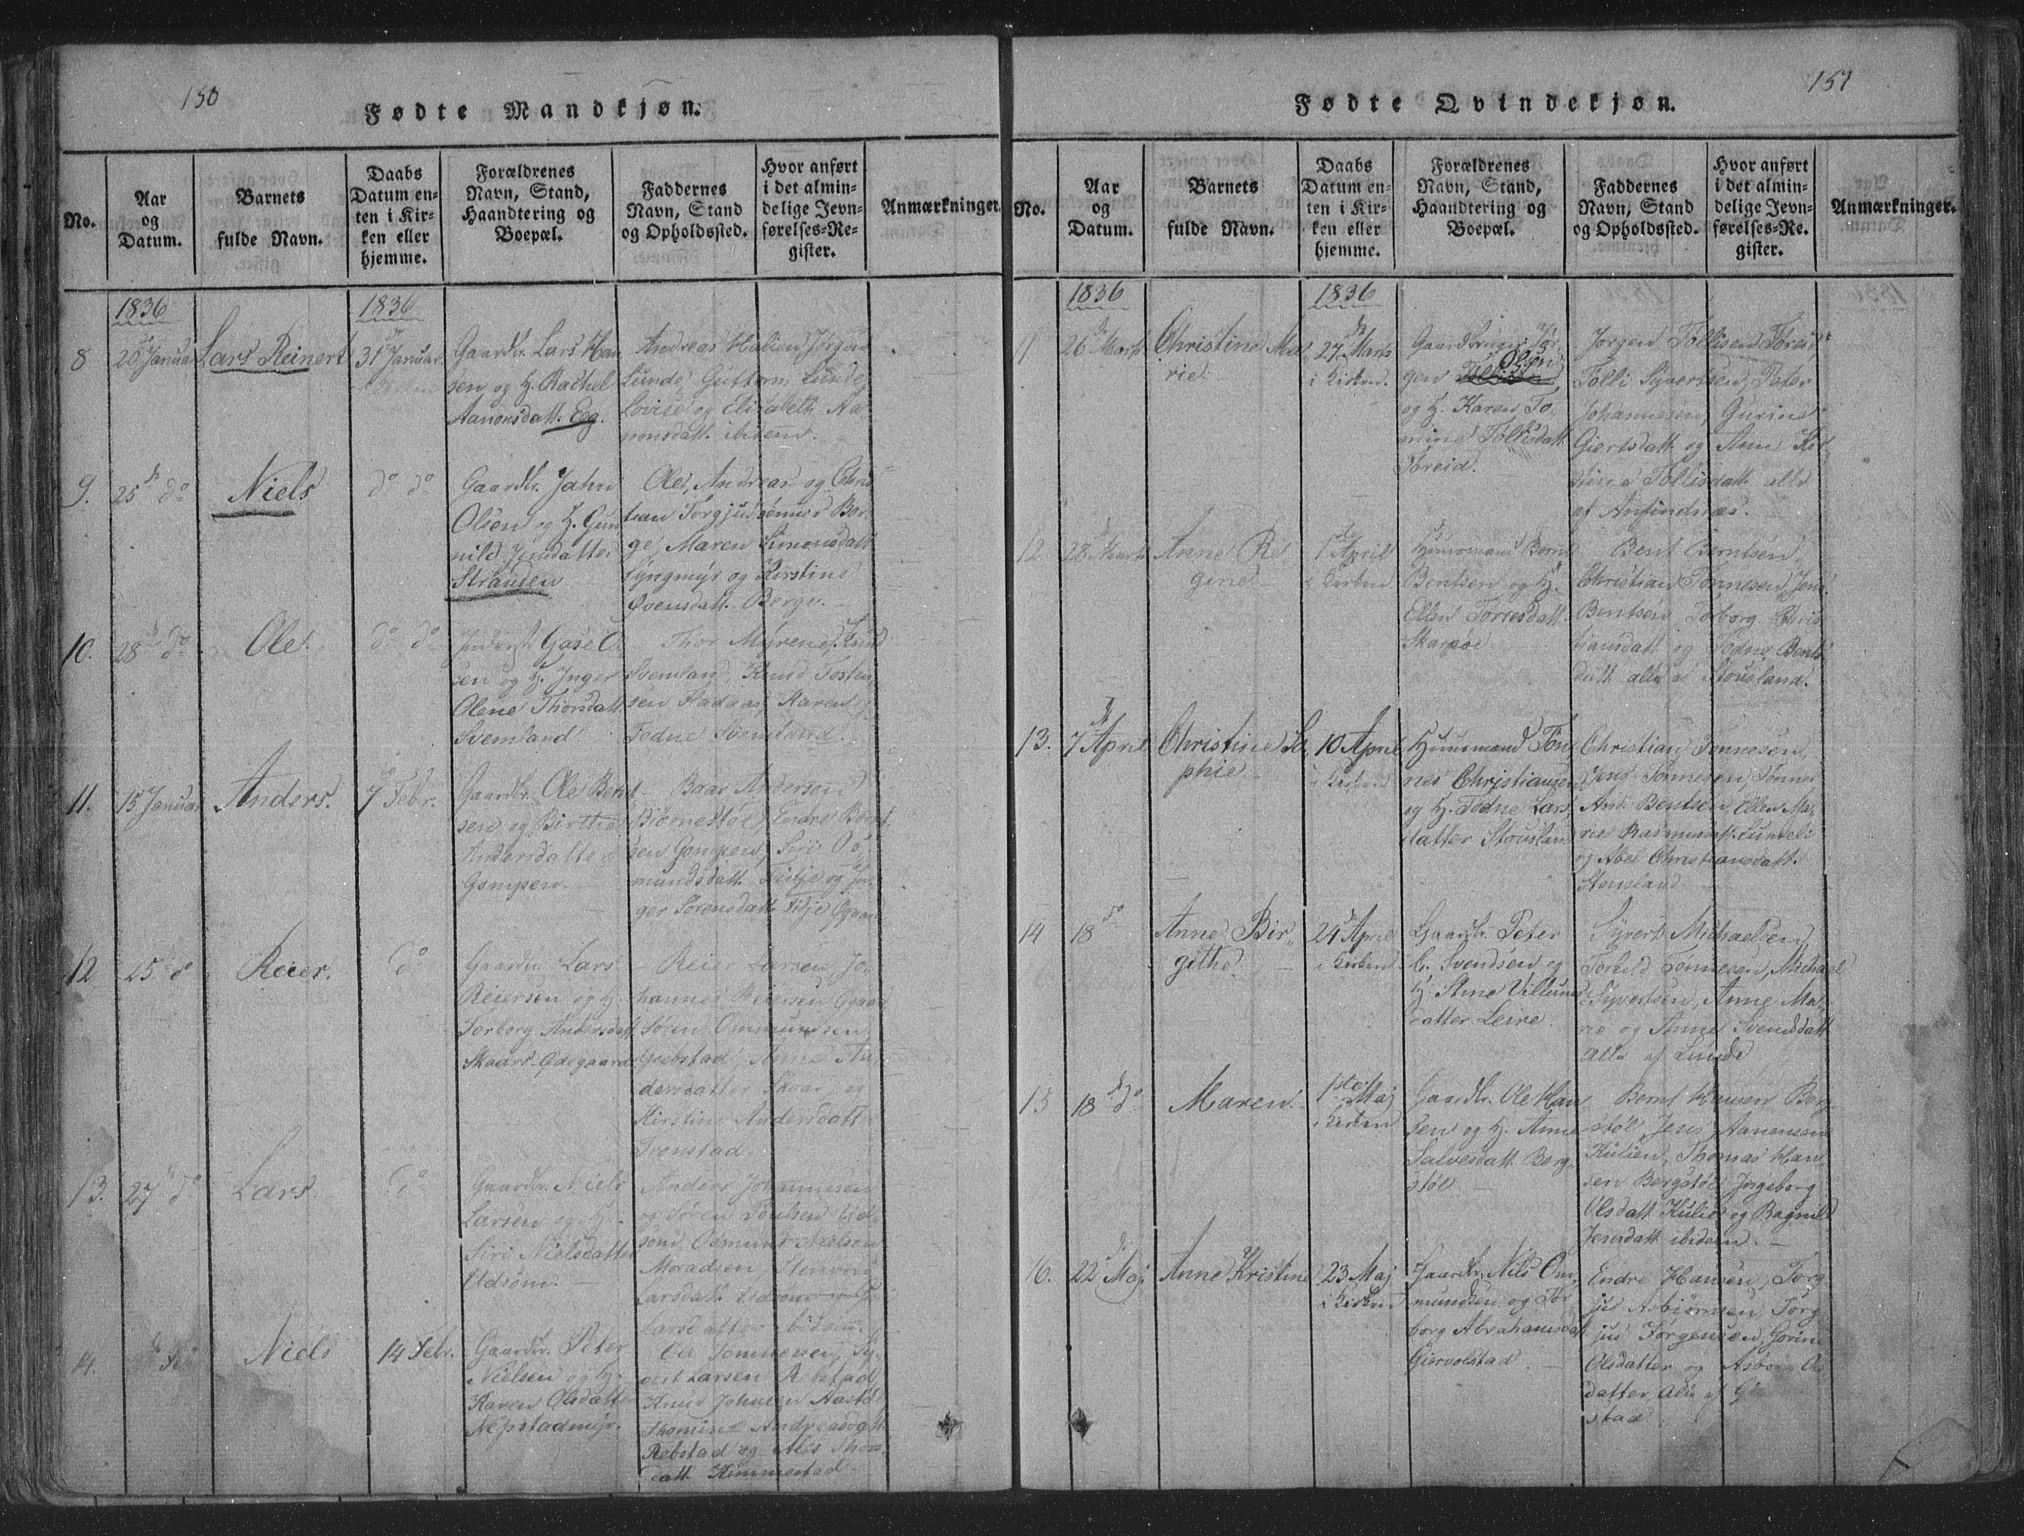 150
Fødte Mandkjøn.
No.
Aar
og
Datum.
Barnets
fulde Navn.
Daabs
Datum en-
ten i Kir-
ken eller
hjemme.
Forældrenes
Navn, Stand,
Haandtering og
Boepæl.
Faddernes
Navn, Stand
og Opholdssted.
Hvor anført
i det almin-
delige Jevn-
førelses-Re-
gister.
Anmærkninger.
1836
1836
8
20 Januar
Lars Reinert
31 Januar
Gaardbr. Lars Han
sen og H. Rachel
Aanonsdatt. Eeg.
Andreas
Lunde Guttorm Lunde
Lovise og Elisabeth Aa-
nonsdatt. ibidem.
9.
25 do
Niels
do do
Gaardbr. Jahn
Olsen og H. Gun
nild Jensdatter
Stranden
Ole, Andreas og Chris
tian Torgjussønner Ber-
ge, Maren Simonsdatt
Lyngmyr og Kirstine
Svensdatt. Berge.
10.
28 do
Ole.
do do
Gose O.
sen og H. Inger
Olene Thorsdatt
Svemland
Thor Myrene, Knud
Svemland, Knud Tosten
sen Hadaas, Karen og
Todne Svemland.
11.
15 Januar
Anders.
7 Febr.
Gaardbr. Ole Bent
sen og Birthe
Andersdatter
Gompen.
Baar Andersen
Biørnestøl, Endre Bent
sen Gompen, Siri Os-
mundsdatt. Tistje og In-
ger Sørensdatt.
12
25 do
Reier.
do
Gaardbr. Lars
Reiersen og H.
Torborg Andersdatt
Skaar-Ødegaard
Reier Larsen, Jo-
hannes Reiersen
Søren Ommundsen
Grebstad, Anne An
dersdatter Skaar, og
Kirstine Andersdatt
Trovstad.
13.
27 do
Lars
do
Gaardbr. Niels
Larsen og H.
Siri Nielsdatter
Udsøm.
Anders Johannesen
og Søren Knutsen Ud-
søm, Osmund Nielsen
Moradsen,
Larsdatt Udsøm
Larsdatter ibidem.
14.
Niels
14 Febr.
Gaardbr. Peter
Nielsen og H.
Karen Olsdatter
Nepstadmyr.
Ole Tønnesen, Sy-
vert Larsen Rebstad,
Knud Johnsen Aastøl
Thomine Andreasdatt
Rebstad og Thors-
datt Kimmestad.
151
Fødte Qvindekjøn.
No.
Aar
og
Datum.
Barnets
fulde Navn.
Daabs
Datum en-
ten i Kir-
ken eller
hjemme.
Forældrenes
Navn, Stand,
Haandtering og
Boepæl.
Faddernes
Navn, Stand
og Opholdssted.
Hvor anført
i det almin-
delige Jevn-
førelses-Re-
gister.
Anmærkninger.
1836
1836
11.
26 Marts
Christine Ma-
rie.
27 Marts
i Kirken.
Gaardbruger Jør-
gen Olsen
og H. Karen To-
mine Tollisdatt
Foreid.
Jørgen Tollisen Foreid
Tolli Syvertsen, Peter
Johannesen, Gurine
Giertsdatt og Anne Kir
stine Tollisdatt alle
af Anfindnæs.
12.
28 Marts
Anne Re
gine
1 April
i Kirken
Huusmand Bernt
Bentsen og H.
Ellen Torresdatt.
Skarpøe
Bent Berntsen,
Christian Tønnesen, Jens
Bentsen, Torborg Chris
tiansdatt og Todne Bents
datt alle af Stousland.
13.
7 April
Christine So
phie
10 April
i Kirken
Huusmand Tøn
nes Christiansen
og H. Todne Lars
datter Stousland
Christian Tønnesen,
Jens Tønnesen, Tønnes
And. Bentsen, Ellen Ma-
rie Rasmusdatt.
og Abel Christiansdatt.
Stousland
14
18 do
Anne Bir-
githe.
24 April
i Kirken
Gaardbr. Peter
C. Svendsen og
H. Stine Villums
datter Leire.
Syvert Michaelsen,
Torkild Tønnesen, Michael
Syvertsen, Anne Ma-
rie og Anne Svendsdatt
Alle af Lunde
15
18 do
Maren
1ste Maj
i Kirken
Gaardbr. Ole Han
sen og H. Anne
Salvesdatt. Berg-
støl.
Bernt Hansen Berg
støl, Jens Aanensen
Kulien, Thomas Han-
sen Bergstøl, Ingeborg
Olsdatt Kulien og Ragnild
Jensdatt ibidem.
16.
22 Maj
Anne Kristine
23 Maj
i Kirken
Gaardbr. Nils Om-
mundsen og Tor
borg Abrahamsdatt
Giervolstad.
Endre Hansen, Torg
jus Asbiørnsen, Torg
jus Jørgensen, Gorine
Olsdatter og Asbor O
datter Alle af Gi
stad